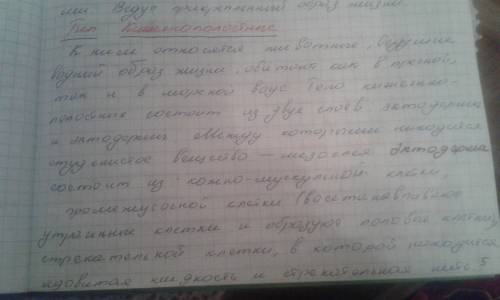 или Ведут прикреплённый образ жизни
Тип Кишечнополостные
К ним относятся животные, ведущие
водный образ жизни, обитают как в пресной,
так и в морской воде Тело кишечно-
полостных состоит из двух слоёв эктодерма
и энтодермы Между которыми находится
студенистое вещество – мезоглея Эктодерма
состоит из кожно-мускульной клетки,
промежуточной клетки (восстанавливает
утраченные клетки и образуют половые клетки,
стрекательной клетки, в которой находится
ядовитая жидкость и стрекательная нить. 5